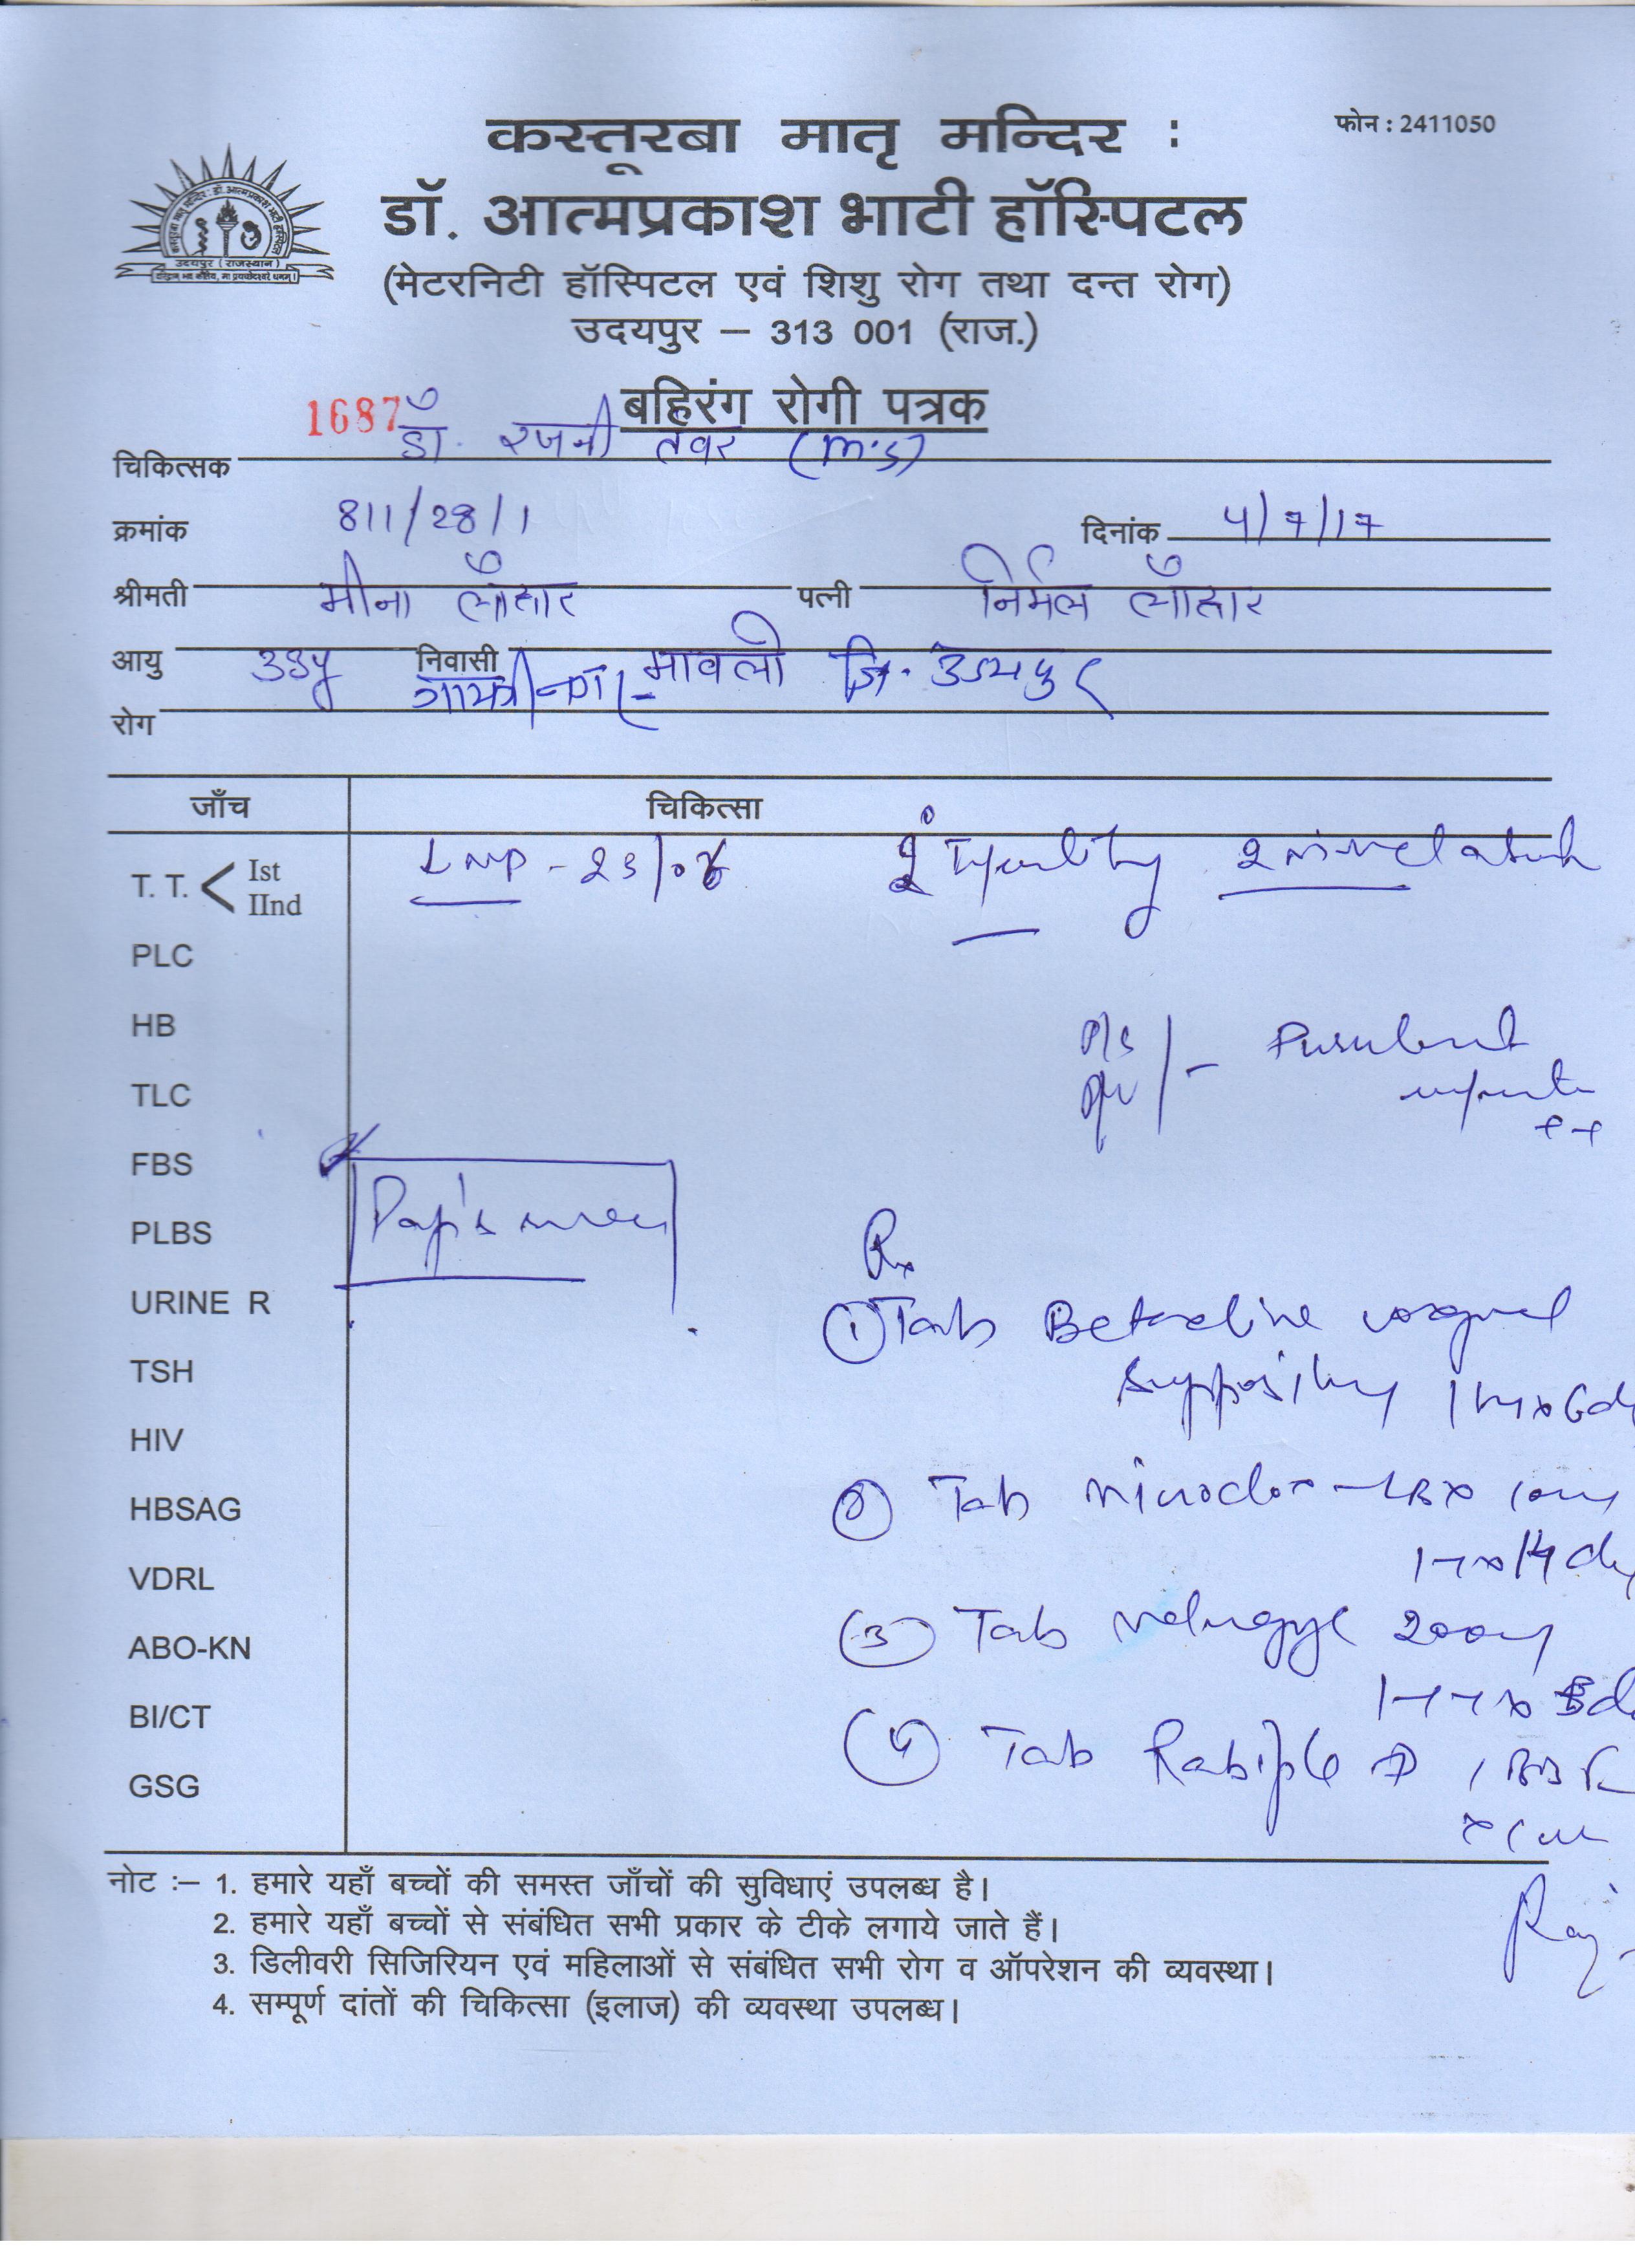 कस्तूरबा मातृ मन्दिर :
फोन : 2411050
डॉ. आत्मप्रकाश भाटी हॉस्पिटल
उदयपुर (राजस्थान)
(मेटरनिटी हॉस्पिटल एवं शिशु रोग तथा दन्त रोग)
उदयपुर – 313 001 (राज.)
1687
बहिरंग रोगी पत्रक
चिकित्सक डॉ. रजनी तंवर (M.S)
क्रमांक 811/28/1 दिनांक 4/7/17
श्रीमती मीना लौहार पत्नी निर्मल लौहार
आयु 33y निवासी मावली जि. उदयपुर
गायत्रीनगर
रोग
जाँच चिकित्सा
T. T. < Ist
IInd
LMP - 23/06 2° Infertility
PLC
HB
P/S
P/V - Purulent
TLC
++
FBS
Pap's smear
PLBS
Rx
URINE R
① Tab Betadine vaginal
TSH
suppository
HIV
HBSAG
② Tab Microdox-LBX
VDRL
ABO-KN
③ Tab Metrogyl 200mg
BI/CT
④ Tab Rabiple D
GSG
नोट :– 1. हमारे यहाँ बच्चों की समस्त जाँचों की सुविधाएं उपलब्ध है।
2. हमारे यहाँ बच्चों से संबंधित सभी प्रकार के टीके लगाये जाते हैं।
3. डिलीवरी सिजिरियन एवं महिलाओं से संबंधित सभी रोग व ऑपरेशन की व्यवस्था।
4. सम्पूर्ण दांतों की चिकित्सा (इलाज) की व्यवस्था उपलब्ध।